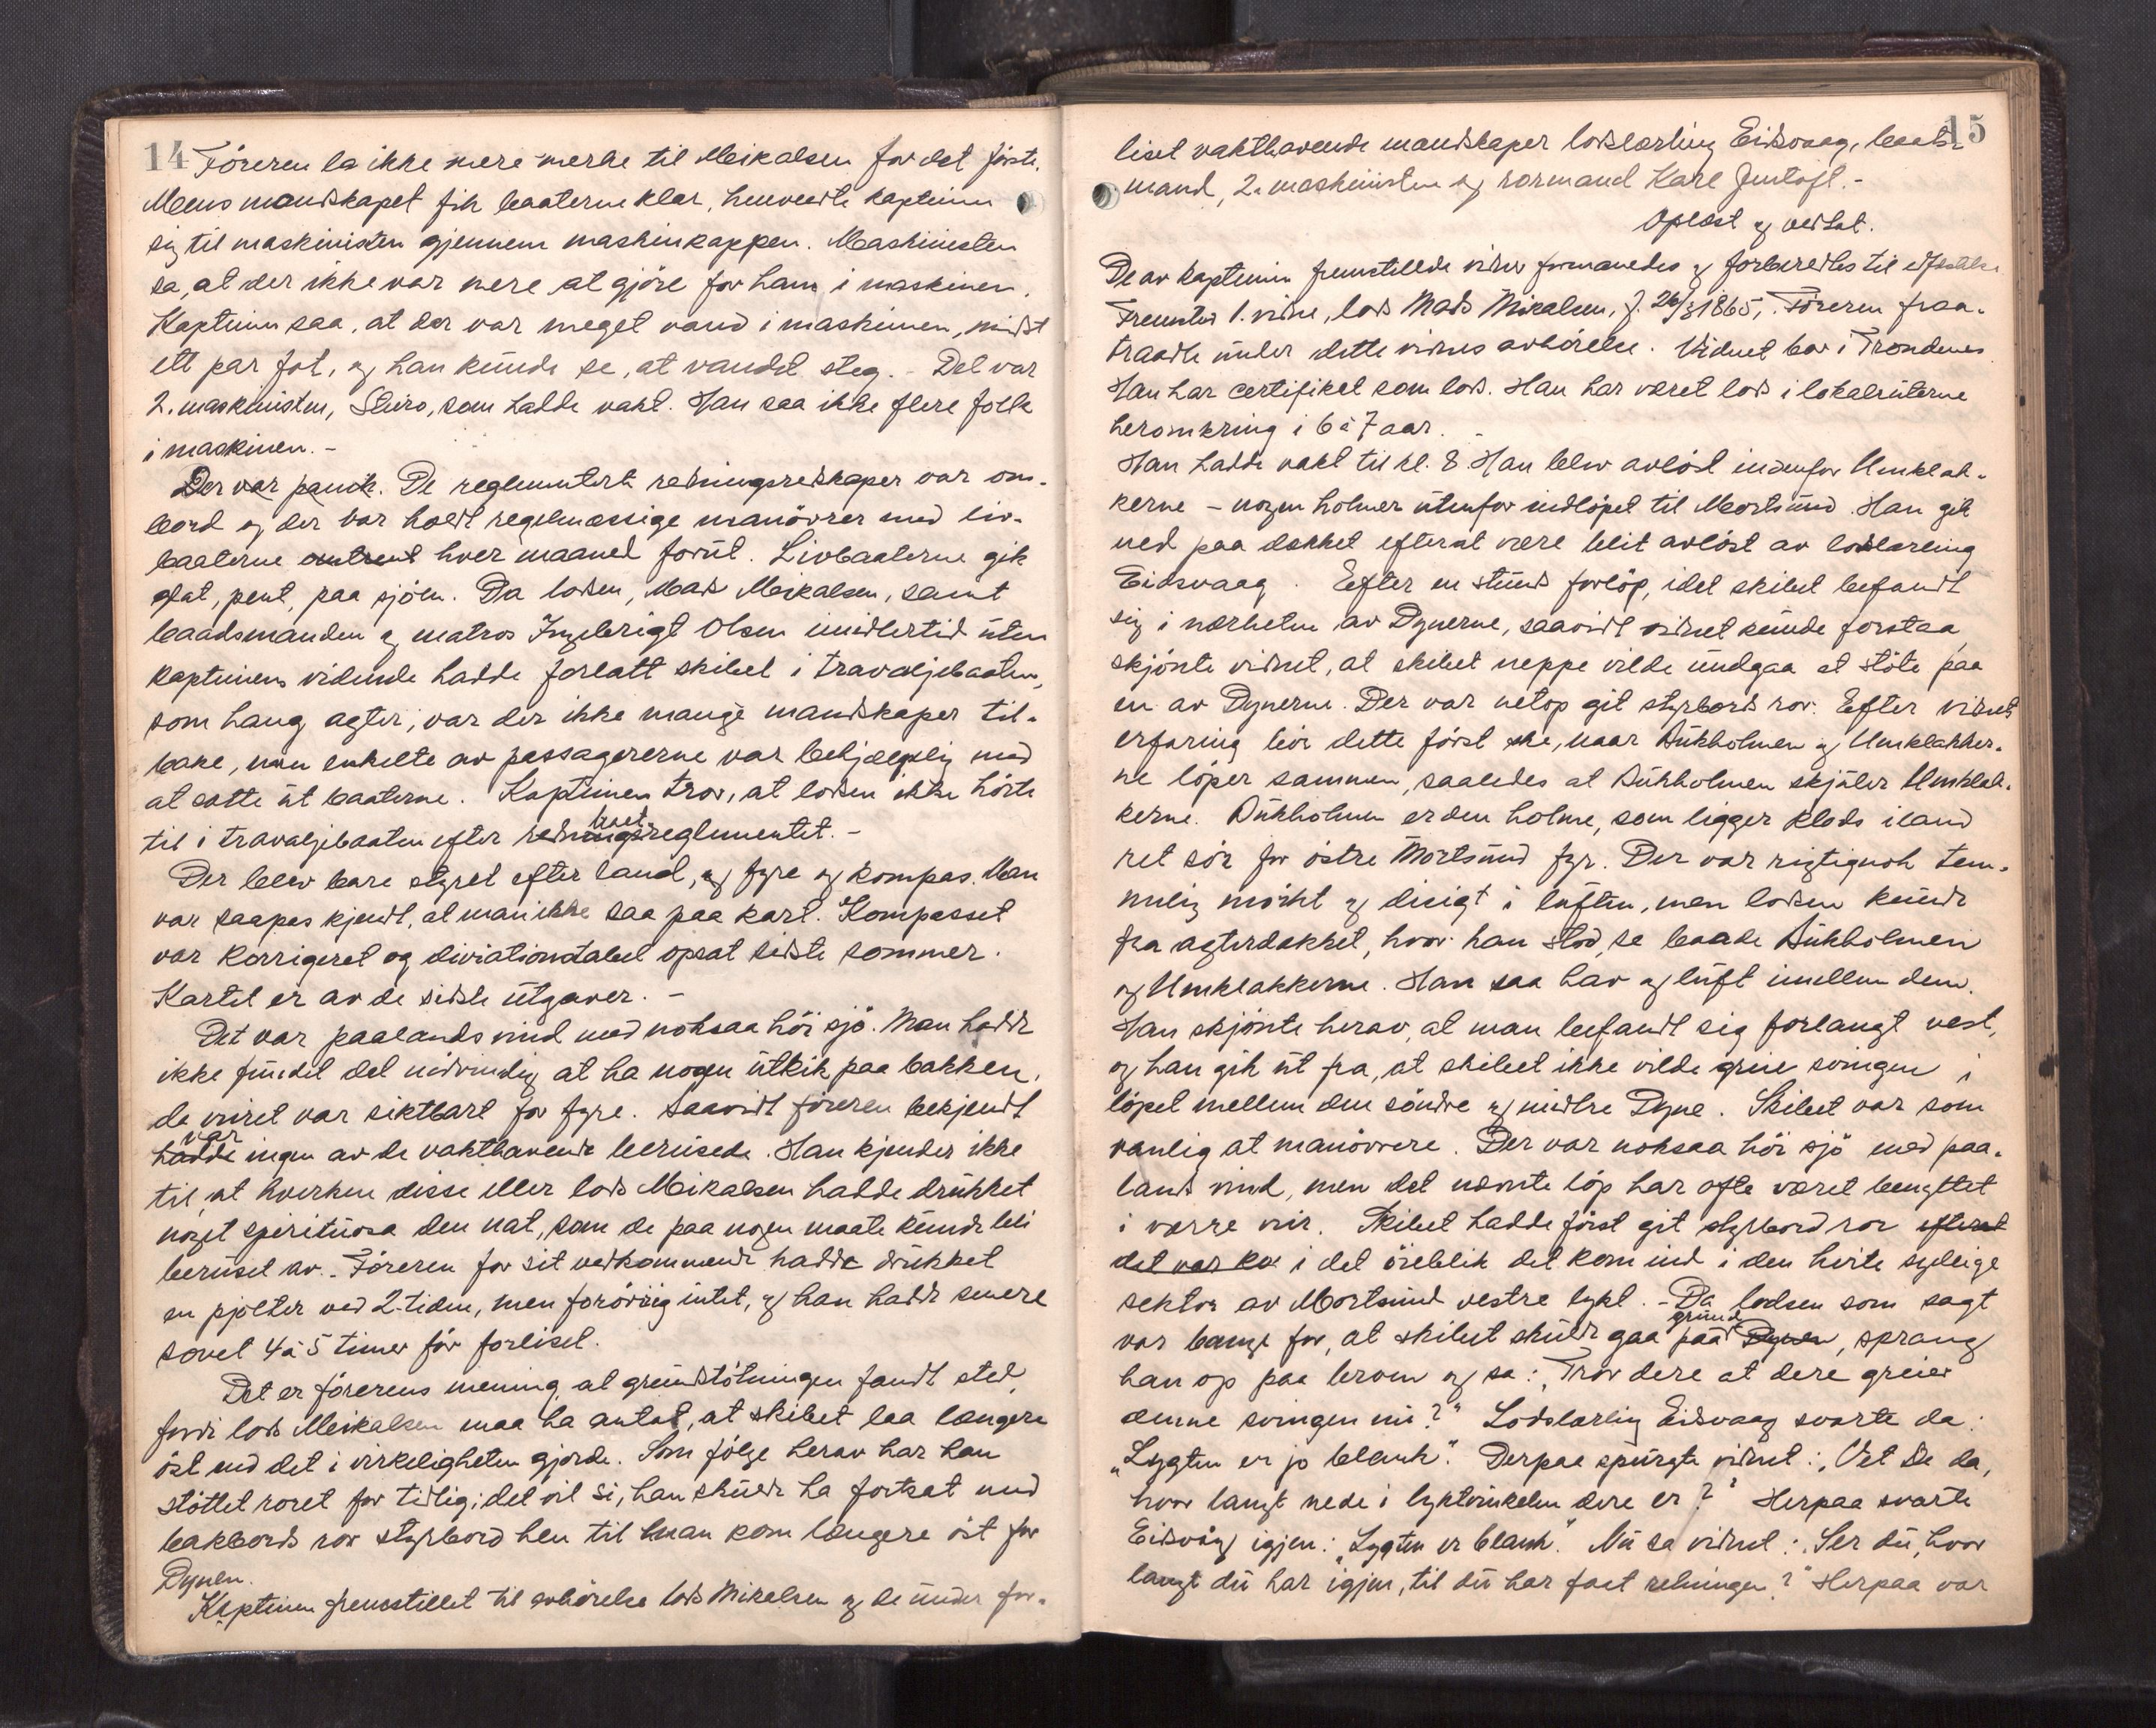 14
Föreren la ikke mere merke til Meikalsen for det förste.
Mens mandskapet fik baaterne klar, henvendte kapteinen
sig til maskinisten gjennem maskinkappen. Maskinisten
sa, at der ikke var mere at gjöre for ham i maskinen.
Kapteinen saa, at der var meget vand i maskinen, mindst
ett par fot, og han kunde se, at vandet steg. - Det var
2. maskinisten, Sture, som hadde vakt. Han saa ikke flere folk
i maskinen. -
Der var panik. De reglementerte redningsredskaper var om-
bord og der var holdt regelmæssige manövrer med liv-
baaterne omtrent hver maaned forut. Livbaaterne gik
glat, pent, paa sjöen. Da losen, Mads Meikalsen, samt
baadsmanden og matros Ingebrigt Olsen imidlertid uten
kapteinens vidende hadde forlatt skibet i travaljebaaten,
som hang agter, var der ikke mange mandskaper til-
bake, men enkelte av passagererne var behjælpelig med
at sætte ut baaterne. Kapteinen tror, at losen ikke hörte
til i travaljebaaten efter redningsreglementet. -
baat
Der blev bare styret efter land, og fyre og kompas. Man
var saapas kjendt, at man ikke saa paa kart. Kompasset
var korrigeret og diviationstabel opsat sidste sommer.
Kartet er av de sidste utgaver. -
Det var paalands vind med noksaa höi sjö. Man hadde
ikke fundet det nödvendig at ha nogen utkik paa bakken,
da veiret var siktbart for fyre. Saavidt föreren bekjendt
hadde ingen av de vakthavende berusede. Han kjender ikke
var
til, at hverken disse eller lods Meikalsen hadde drukket
noget spirituosa den nat, som de paa nogen maate kunde bli
beruset av. - Föreren for sit vedkommende hadde drukket
en pjolter ved 2-tiden, men forövrig intet, og han hadde senere
sovet 4 à 5 timer för forliset.
Det er förerens mening, at grundstötningen fandt sted,
fordi lods Meikalsen maa ha antat, at skibet laa længere
öst end det i virkeligheten gjorde. Som fölge herav har han
støttet roret for tidlig; det vil si, han skulde ha fortsat med
bakbords ror styrbord hen til man kom længere öst for
Dynen.
Kapteinen fremstillet til avhörelse lods Mikalsen og de under for-
15
liset vakthavende mandskaper loslærling Eidsvaag, baats-
mand, 2. maskinisten og rormand Kare Jentoft. -
Oplæst og vedtat.
De av kapteinen fremstillede vidner formanedes og forberedtes til edsavlæggelse
Fremstod 1. vidne, los Mads Mikalsen, f. 26/3 1865,. Föreren fraa-
traadte under dette vidnes avhörelse. Vidnet bor i Trondenes
Han har certifikat som los. Han har været los i lokalruterne
heromkring i 6 à 7 aar. -
Han hadde vakt til kl. 8. Han blev avlöst indenfor Umklak-
kerne - nogen holmer utenfor indlöpet til Mortsund. Han gik
ned paa dækket efterat være blit avlöst av loslærling
Eidsvaag. Efter en stunds forlöp, idet skibet befandt
sig i nærheten av Dynerne, saavidt vidnet kunde forstaa,
skjönte vidnet, at skibet neppe vilde undgaa at stöte paa
en av Dynerne. Der var netop git styrbords ror. Efter vidnets
erfaring bör dette först ske, naar Aukholmen og Umklakker-
ne löper sammen, saaledes at Aukholmen skjuler Umklak-
kerne. Aukholmen er den holme, som ligger klods i land
ret sör for östre Mortsund fyr. Der var rigtignok tem-
melig mörkt og disigt i luften, men losen kunde
fra agterdækket, hvor han stod, se baade Aukholmen
og Umklakkerne. Han saa hav og luft imellem dem.
Han skjönte herav, at man befandt sig forlangt vest,
og han gik ut fra, at skibet ikke vilde greie svingen i
löpet mellem den söndre og midtre Dyne. Skibet var som
vanlig at manövrere. Der var noksaa höi sjö med paa-
lands vind, men det nævnte löp har ofte været benyttet
i værre veir. Skibet hadde först git styrbord ror efterat
det var ko i det öieblik det kom ind i den hvite sydlige
sektor av Mortsund vestre lykt. - Da lodsen som sagt
var bange for, at skibet skulde gaa paa Dynen, sprang
grund
han op paa broen og sa: „Tror dere at dere greier
denne svingen nu?" Lodslærling Eidsvaag svarte da:
„Lygten er jo blank." Derpaa spurgte vidnet: „Vet De da,
hvor langt nede i lyktvinkelen dere er?" Herpaa svarte
Eidsvåg igjen: „Lygten er blank." Nu sa vidnet: „Ser du, hvor
langt du har igjen, til du har faat retningen?" Herpaa var